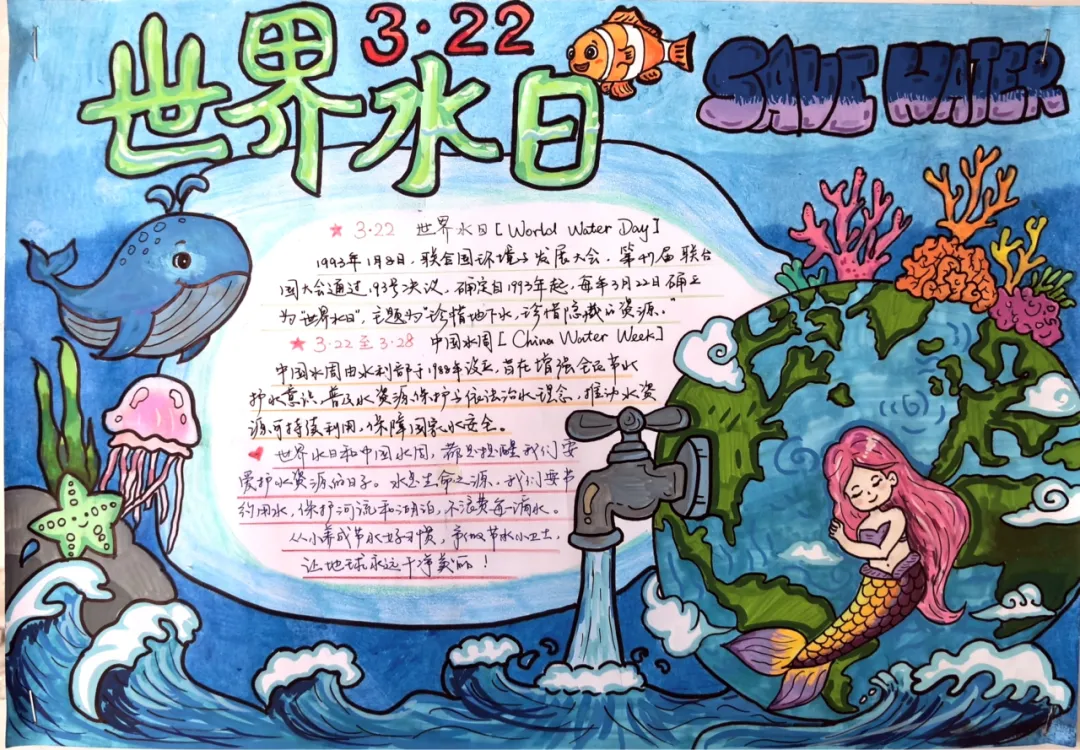 3·22
世界水日
SAVE WATER
★ 3·22 世界水日 [World Water Day]
1993年1月8日，联合国环境与发展大会，第47届联合
国大会通过193号决议，确定自1993年起，每年3月22日确立
为“世界水日”，主题为“珍惜地下水，珍惜隐藏的资源。”
★ 3·22 至 3·28 中国水周 [China Water Week]
中国水周由水利部于1988年设立，旨在增强全民节水
护水意识，普及水资源保护与依法治水理念，推动水资
源可持续利用，保障国家水安全。
世界水日和中国水周，都是提醒我们要
爱护水资源的日子。水是生命之源，我们要节
约用水，保护河流和湖泊，不浪费每一滴水。
从小养成节水好习惯，争做节水小卫士，
让地球永远干净美丽！